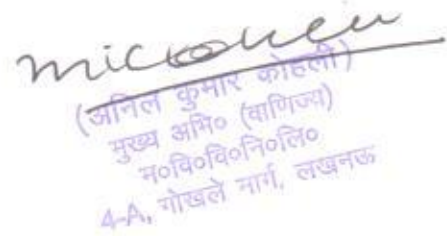 (अनिल कुमार कोहली)
मुख्य अभि० (वाणिज्य)
म०वि०वि०नि०लि०
4-A, गोखले मार्ग, लखनऊ